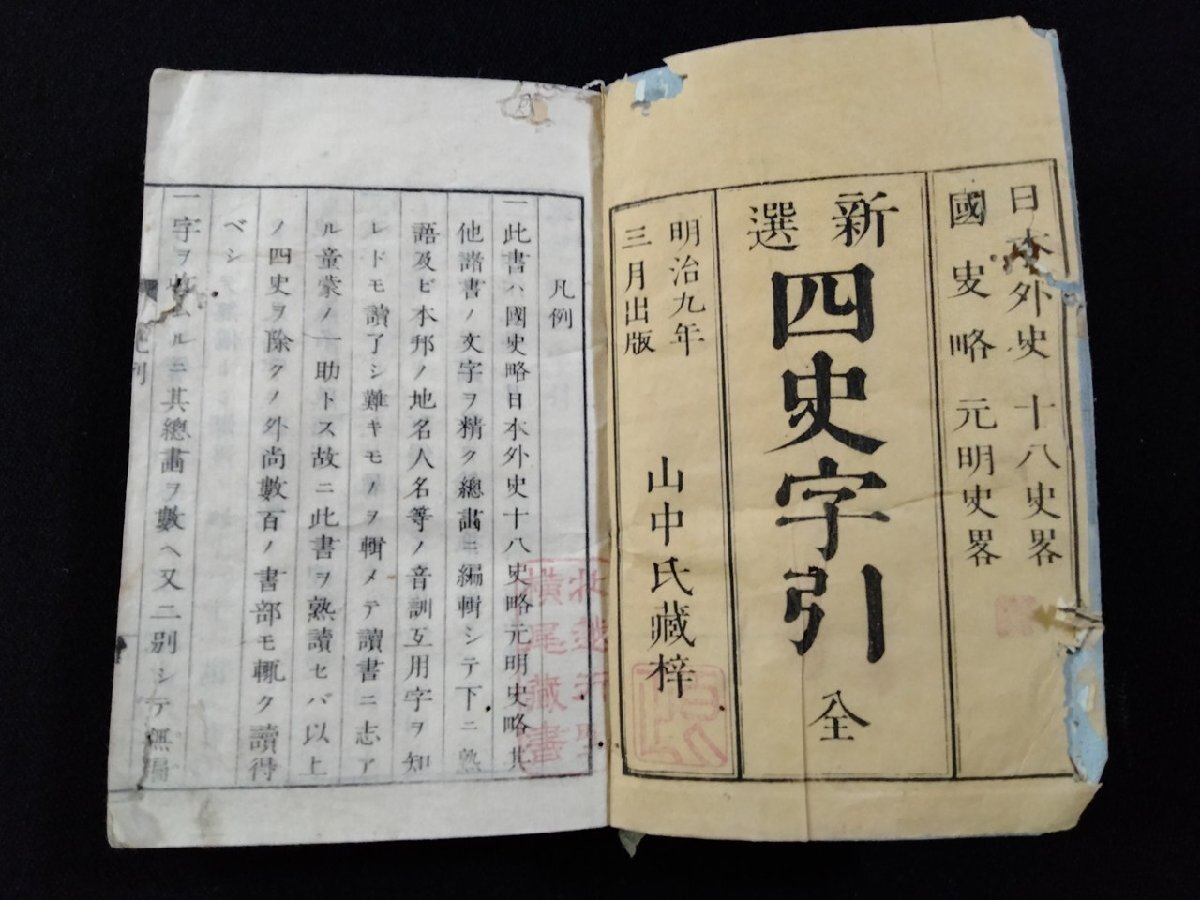 日本外史 十八史畧
國史略 元明史畧
新選 四史字引 全
明治九年
三月出版
山中氏藏梓
凡例
一此書ハ國史略日本外史十八史略元明史略其
他諸書ノ文字ヲ精ク總畫ニ編輯シテ下ニ熟
語及ビ本邦ノ地名人名等ノ音訓互用字ヲ知
レドモ讀了シ難キモノヲ輯メテ讀書ニ志ア
ル童蒙ノ一助トス故ニ此書ヲ熟讀セバ以上
ノ四史ヲ除クノ外尚數百ノ書部モ輒ク讀得
ベシ
一字ヲ ルニ其總畫ヲ數ヘ又二別シテ無
横尾藏書